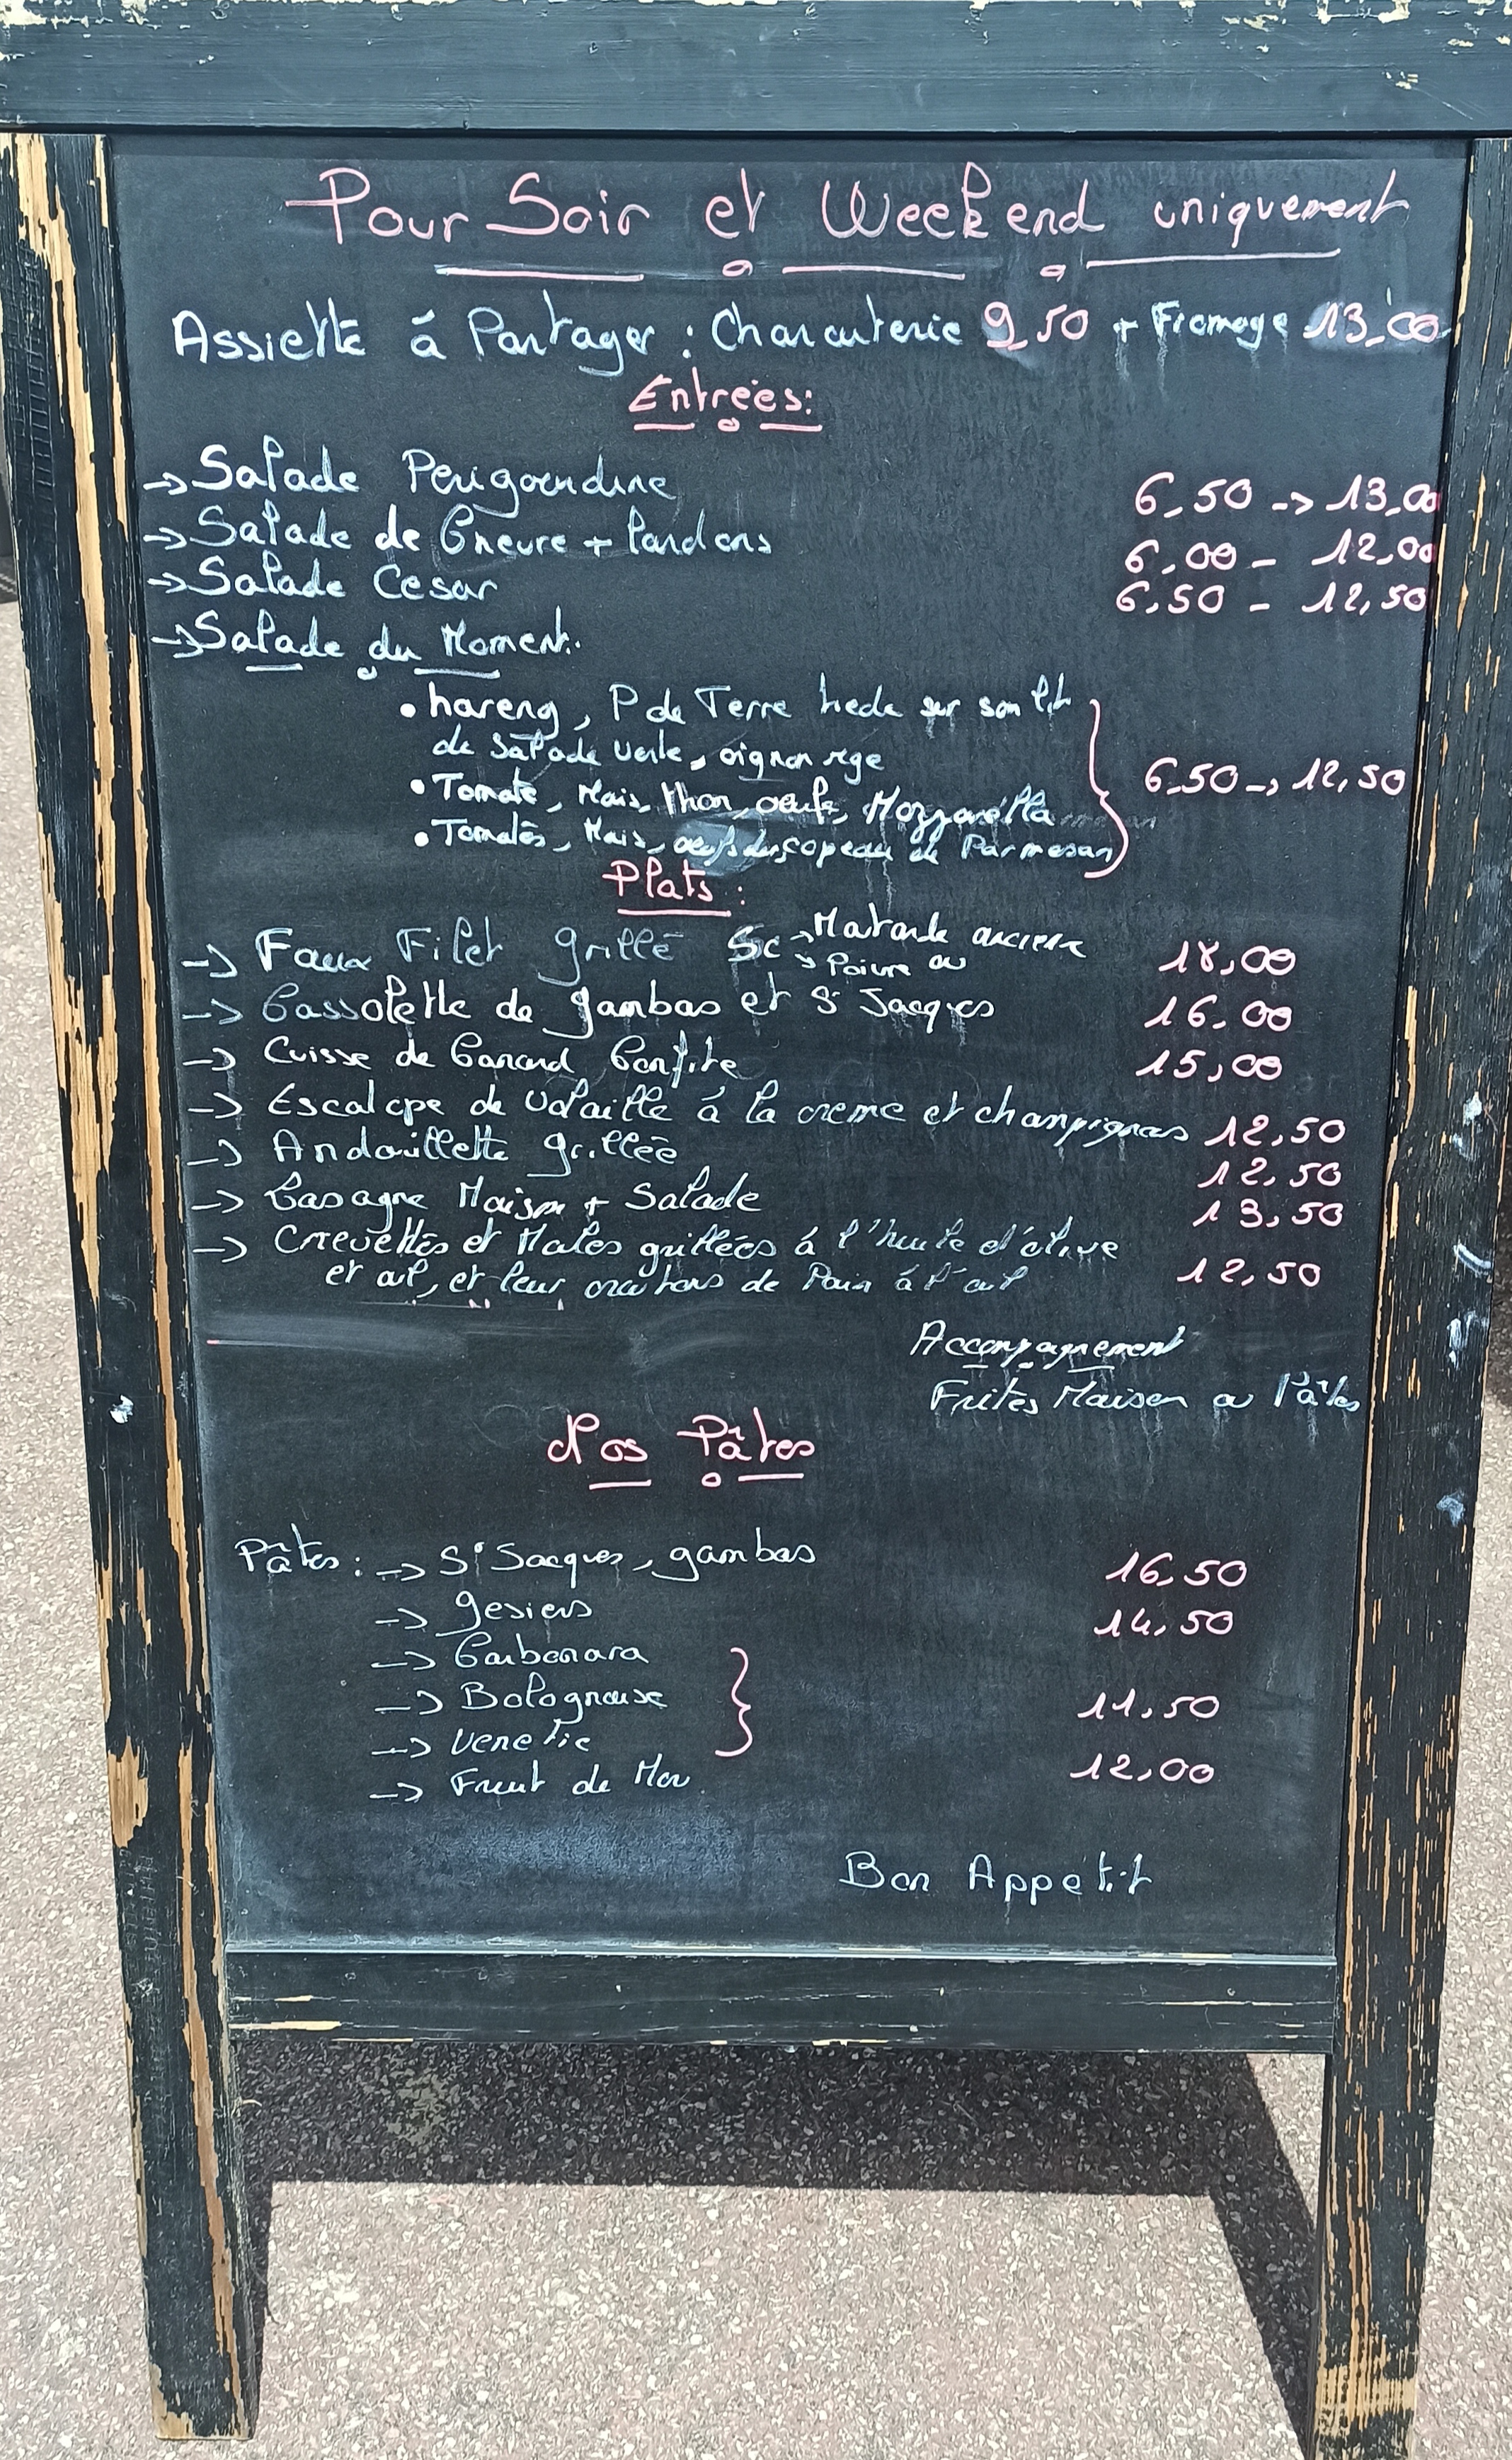 Pour Soir et Weekend uniquement
Assiette à Partager : Charcuterie 9,50 + Fromage 13,00
Entrées :
-> Salade Perigourdine 6,50 -> 13,00
-> Salade de Chevre + Lardons 6,00 - 12,00
-> Salade Cesar 6,50 - 12,50
-> Salade du Moment.
• hareng, P de Terre tiede sur son lit
de salade verte, oignon rge
6,50 -> 12,50
• Tomate, Mais, thon, oeufs, Mozzarella
• Tomates, Mais, copeau de Parmesan
Plats :
-> Faux Filet grillé Sc -> Moutarde ancienne 18,00
-> Poivre ou
-> Cassolette de gambas et St Jacques 16,00
-> Cuisse de Canard Confite 15,00
-> Escalope de Volaille à la creme et champignons 12,50
-> Andouillette grillée 12,50
-> Lasagne Maison + Salade 13,50
-> Crevettes et Moules grillées à l'huile d'olive
et ail, et leur croutons de Pain à l'ail 12,50
Accompagnement
Frites Maison ou Pâtes
Nos Pâtes
Pâtes : -> St Jacques, gambas 16,50
-> gesiers 14,50
-> Carbonara
-> Bolognaise 11,50
-> Venetie
-> Fruit de Mer 12,00
Bon Appetit